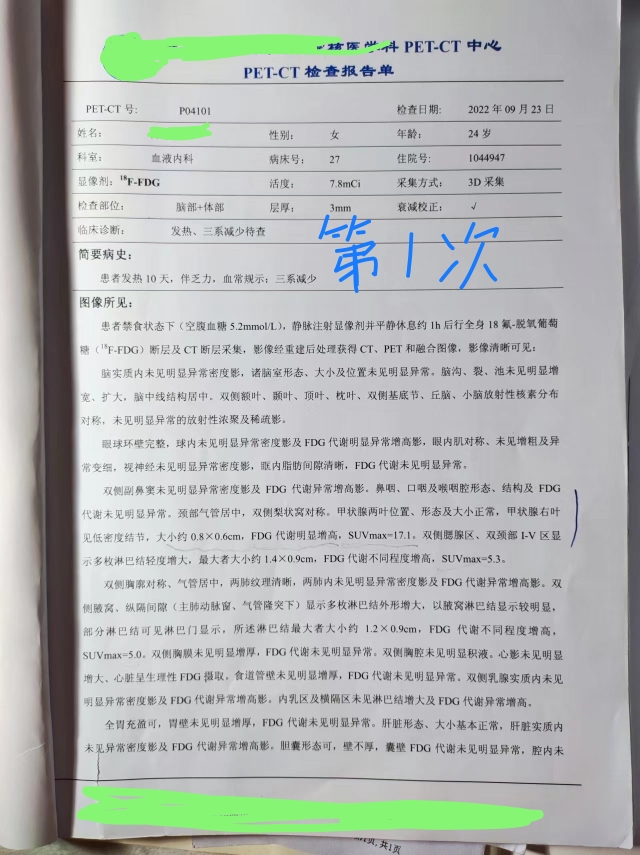 核医学科 PET-CT 中心
PET-CT 检查报告单
PET-CT 号: P04101 检查日期: 2022 年 09 月 23 日
姓名: 性别: 女 年龄: 24 岁
科室: 血液内科 病床号: 27 住院号: 1044947
显像剂: ¹⁸F-FDG 活度: 7.8mCi 采集方式: 3D 采集
检查部位: 脑部+体部 层厚: 3mm 衰减校正: √
临床诊断: 发热、三系减少待查
第1次
简要病史:
患者发热 10 天，伴乏力，血常规示：三系减少
图像所见:
患者禁食状态下（空腹血糖 5.2mmol/L），静脉注射显像剂并平静休息约 1h 后行全身 18 氟-脱氧葡萄
糖（¹⁸F-FDG）断层及 CT 断层采集，影像经重建后处理获得 CT、PET 和融合图像，影像清晰可见：
脑实质内未见明显异常密度影，诸脑室形态、大小及位置未见明显异常。脑沟、裂、池未见明显增
宽、扩大，脑中线结构居中。双侧额叶、颞叶、顶叶、枕叶、双侧基底节、丘脑、小脑放射性核素分布
对称，未见明显异常的放射性浓聚及稀疏影。
眼球环壁完整，球内未见明显异常密度影及 FDG 代谢明显异常增高影，眼内肌对称、未见增粗及异
常变细，视神经未见明显异常密度影，眶内脂肪间隙清晰，FDG 代谢未见明显异常。
双侧副鼻窦未见明显异常密度影及 FDG 代谢异常增高影。鼻咽、口咽及喉咽腔形态、结构及 FDG
代谢未见明显异常。颈部气管居中，双侧梨状窝对称。甲状腺两叶位置、形态及大小正常，甲状腺右叶
见低密度结节，大小约 0.8×0.6cm，FDG 代谢明显增高，SUVmax=17.1。双侧腮腺区、双颈部 I-V 区显
示多枚淋巴结轻度增大，最大者大小约 1.4×0.9cm，FDG 代谢不同程度增高，SUVmax=5.3。
双侧胸廓对称、气管居中，两肺纹理清晰，两肺内未见明显异常密度影及 FDG 代谢异常增高影。双
侧腋窝、纵隔间隙（主肺动脉窗、气管隆突下）显示多枚淋巴结外形增大，以腋窝淋巴结显示较明显，
部分淋巴结可见淋巴门显示，所述淋巴结最大者大小约 1.2×0.9cm，FDG 代谢不同程度增高，
SUVmax=5.0。双侧胸膜未见明显增厚，FDG 代谢未见明显异常。双侧胸腔未见明显积液。心影未见明显
增大、心脏呈生理性 FDG 摄取，食道管壁未见明显增厚，FDG 代谢未见明显异常。双侧乳腺实质内未见
明显异常密度影及 FDG 代谢异常增高影。内乳区及横隔区未见淋巴结增大及 FDG 代谢异常增高。
全胃充盈可，胃壁未见明显增厚，FDG 代谢未见明显异常。肝脏形态、大小基本正常，肝脏实质内
未见异常密度影及 FDG 代谢异常增高影。胆囊形态可，壁不厚，囊壁 FDG 代谢未见明显异常，腔内未
页，共1页